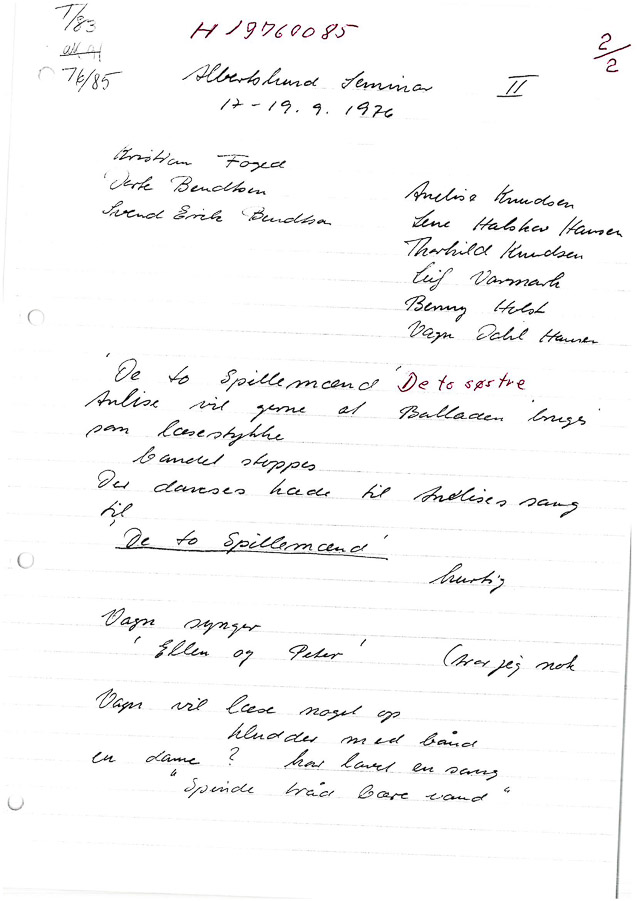 T/83
H 19760085
2/2
76/85
Albertslund Seminar II
17-19.9.1976
Kristian Foged
Bendtsen
Svend Erik Bendtsen
Anelise Knudsen
Lene Halskov Hansen
Thorkild Knudsen
Leif Varmark
Benny Holst
Vagn Dahl Hansen
'De to Spillemænd' De to søstre
Anlise vil gerne at Balladen bruges
som læsestykke
bandet stoppes
Der danses kæde til Anelises sang
til
'De to Spillemænd'
hurtig
Vagn synger
'Ellen og Peter' (tror jeg nok
Vagn vil læse noget op
kludder med bånd
en dame? har lavet en sang
"Spinde tråd bære vand"